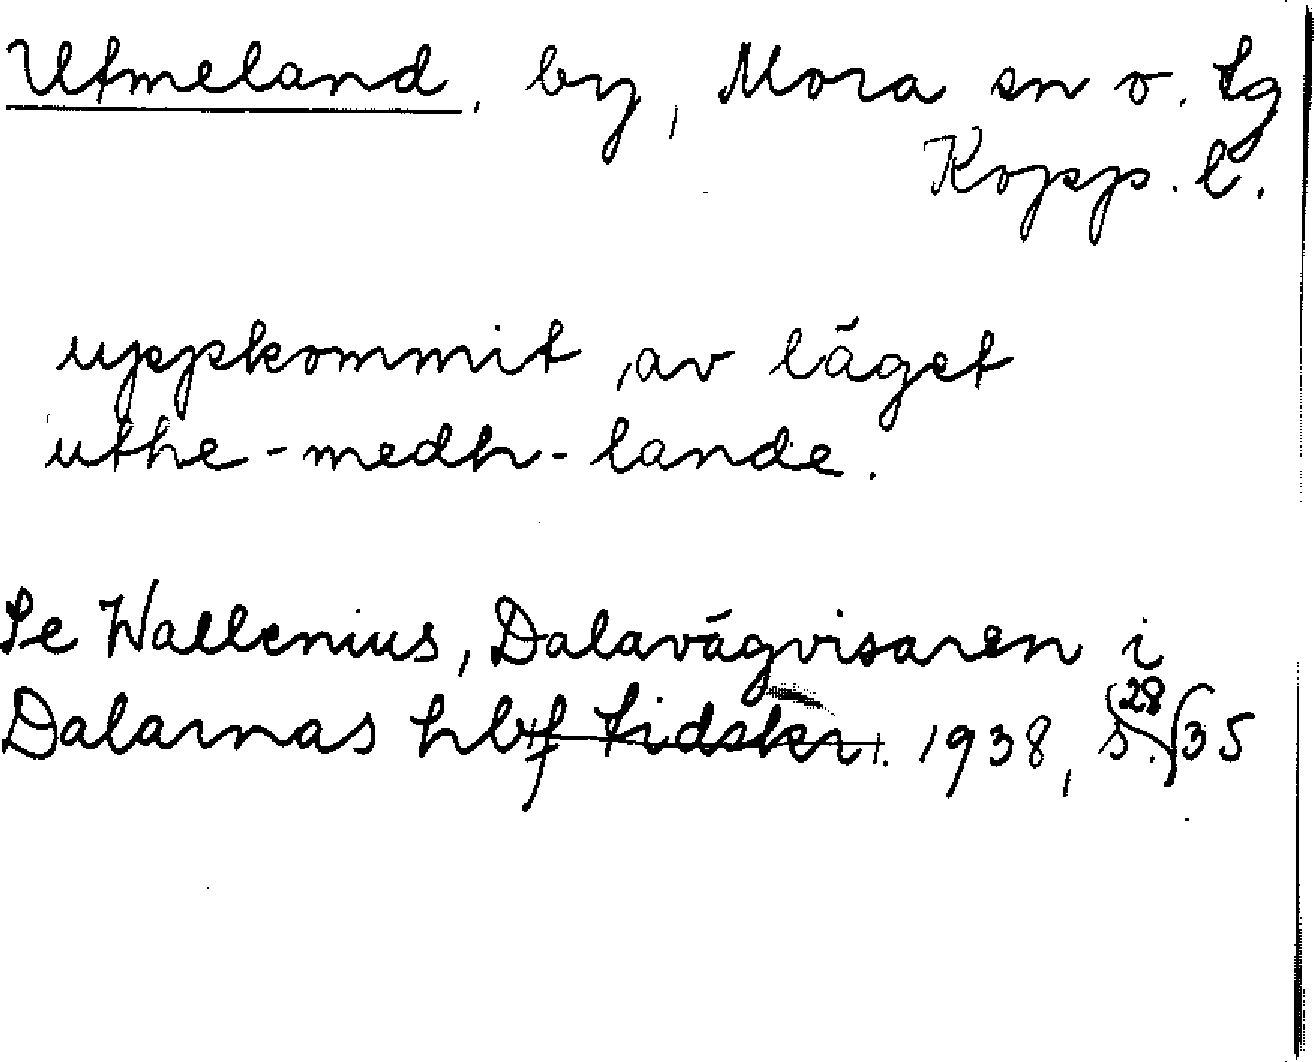 Utmeland, by, Mora sn o. tg
Kopp. l.
uppkommit av läget
uthe-medh-lande.
Se Wallenius, Dalavägvisaren i
Dalarnas hbf tidskr. 1938, s. 28 35